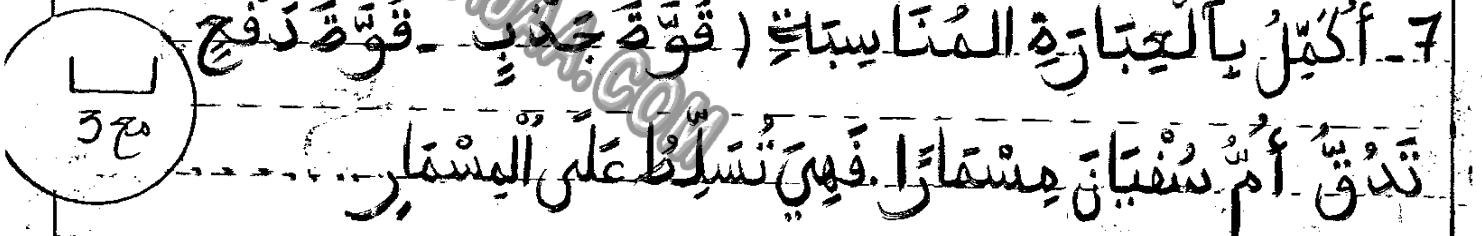 7- أُكَمِّلُ بِالْعِبَارَةِ المُنَاسِبَةِ ( قُوَّةُ جَذْبٍ - قُوَّةُ دَفْعٍ
تَدُقُّ أُمُّ سُفْيَانَ مِسْمَارًا. فَهِيَ تُسَلِّطُ عَلَى الْمِسْمَارِ ........
مع 3